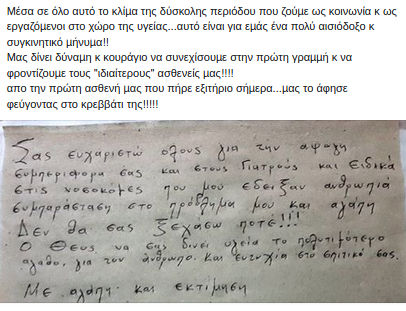 Μέσα σε όλο αυτό το κλίμα της δύσκολης περιόδου που ζούμε ως κοινωνία κ ως
εργαζόμενοι στο χώρο της υγείας...αυτό είναι για εμάς ένα πολύ αισιόδοξο κ
συγκινητικό μήνυμα!!
Μας δίνει δύναμη κ κουράγιο να συνεχίσουμε στην πρώτη γραμμή κ να
φροντίζουμε τους "ιδιαίτερους" ασθενείς μας!!!!
απο την πρώτη ασθενή μας που πήρε εξιτήριο σήμερα...μας το άφησε
φεύγοντας στο κρεββάτι της!!!!!
Σας ευχαριστώ όλους για την άψογη
συμπεριφορα σας και στους Γιατρούς και Ειδικά
στις νοσοκόμες που μου έδειξαν ανθρωπιά
συμπαράσταση στο πρόβλημα μου και αγάπη
Δεν θα σας ξεχάσω ποτέ!!!
Ο Θεος να σας δινει υγεία το πολυτιμότερο
αγαθο, για τον άνθρωπο. και ευτυχία στο σπιτικό σας.
Με αγάπη και εκτίμηση